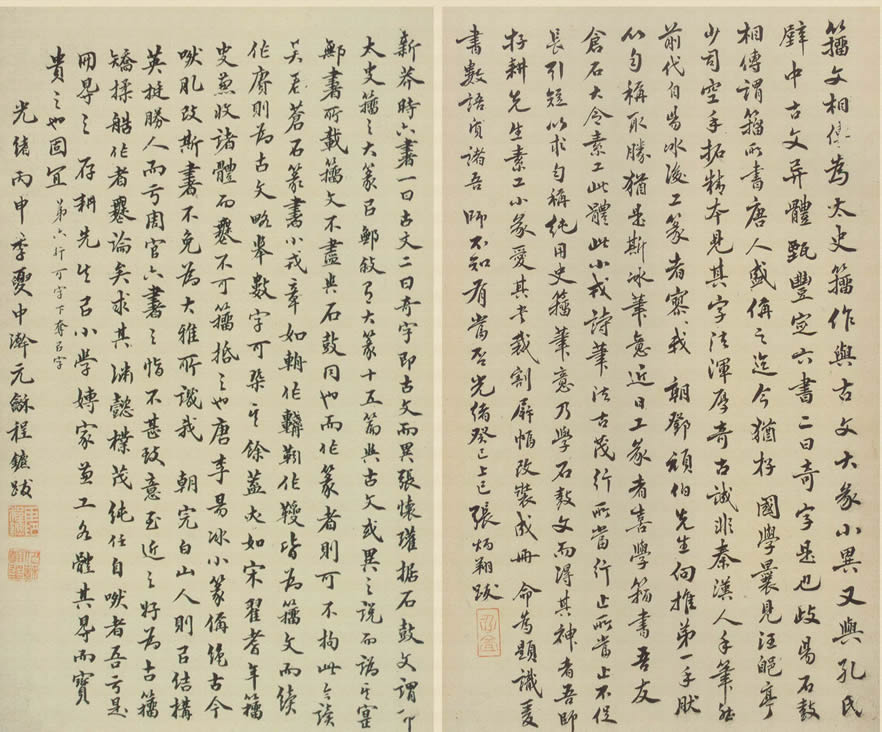 籀文相傳為太史籀作與古文大篆小異又與孔氏
壁中古文異體甄豐定六書二曰奇字是也岐昜石鼓
相傳謂籀所書唐人盛偁之迄今猶存國學曩見汪皰亭
少司空手拓精本見其字法渾厚奇古誠非秦漢人手筆
前代自昜冰後工篆者寥〻我 朝鄧頑伯先生向推第一手肰
以勻稱取勝猶是斯冰筆意近日工篆者喜學籀書吾友
倉石大令素工此體此小戎詩筆法古茂行所當行止所當止不促
長引短以求勻稱純用史籀筆意乃學石鼓文而得其神者吾師
存耕先生素工小篆愛其書裁割屏幅改裝成冊 命為題識爰
書數語質諸吾 師不知有當否光緒癸巳上巳張炳翔跋
新莽時六書一曰古文二曰奇字即古文而異張懷瓘据石鼓文謂
大史籀之大篆呂鄦敘有大篆十五篇與古文或異之說而
鄦書所載籀文不盡與石鼓同也而作篆者則可不拘此今讀
吳君蒼石篆書小戎章如輈作 靷作 皆為籀文而續
作賡則為古文略舉數字可 其餘蓋 如宋翟耆年籀
史兼收諸體而 不可籀抵之也唐李昜冰小篆偁絕古今
肰肊改斯書不免為大雅所譏我 朝完白山人則呂結構
英挺勝人而于周官六書之恉不甚致意至近之好為古籀
矯揉 作者 論矣求其淵懿樸茂純任自肰者吾于是
冊 之存耕先生呂小學專家兼工各體其 而寶
貴之也固宜 第六行可字下奪呂字
光緒丙申季夏中澣元和程鑣跋